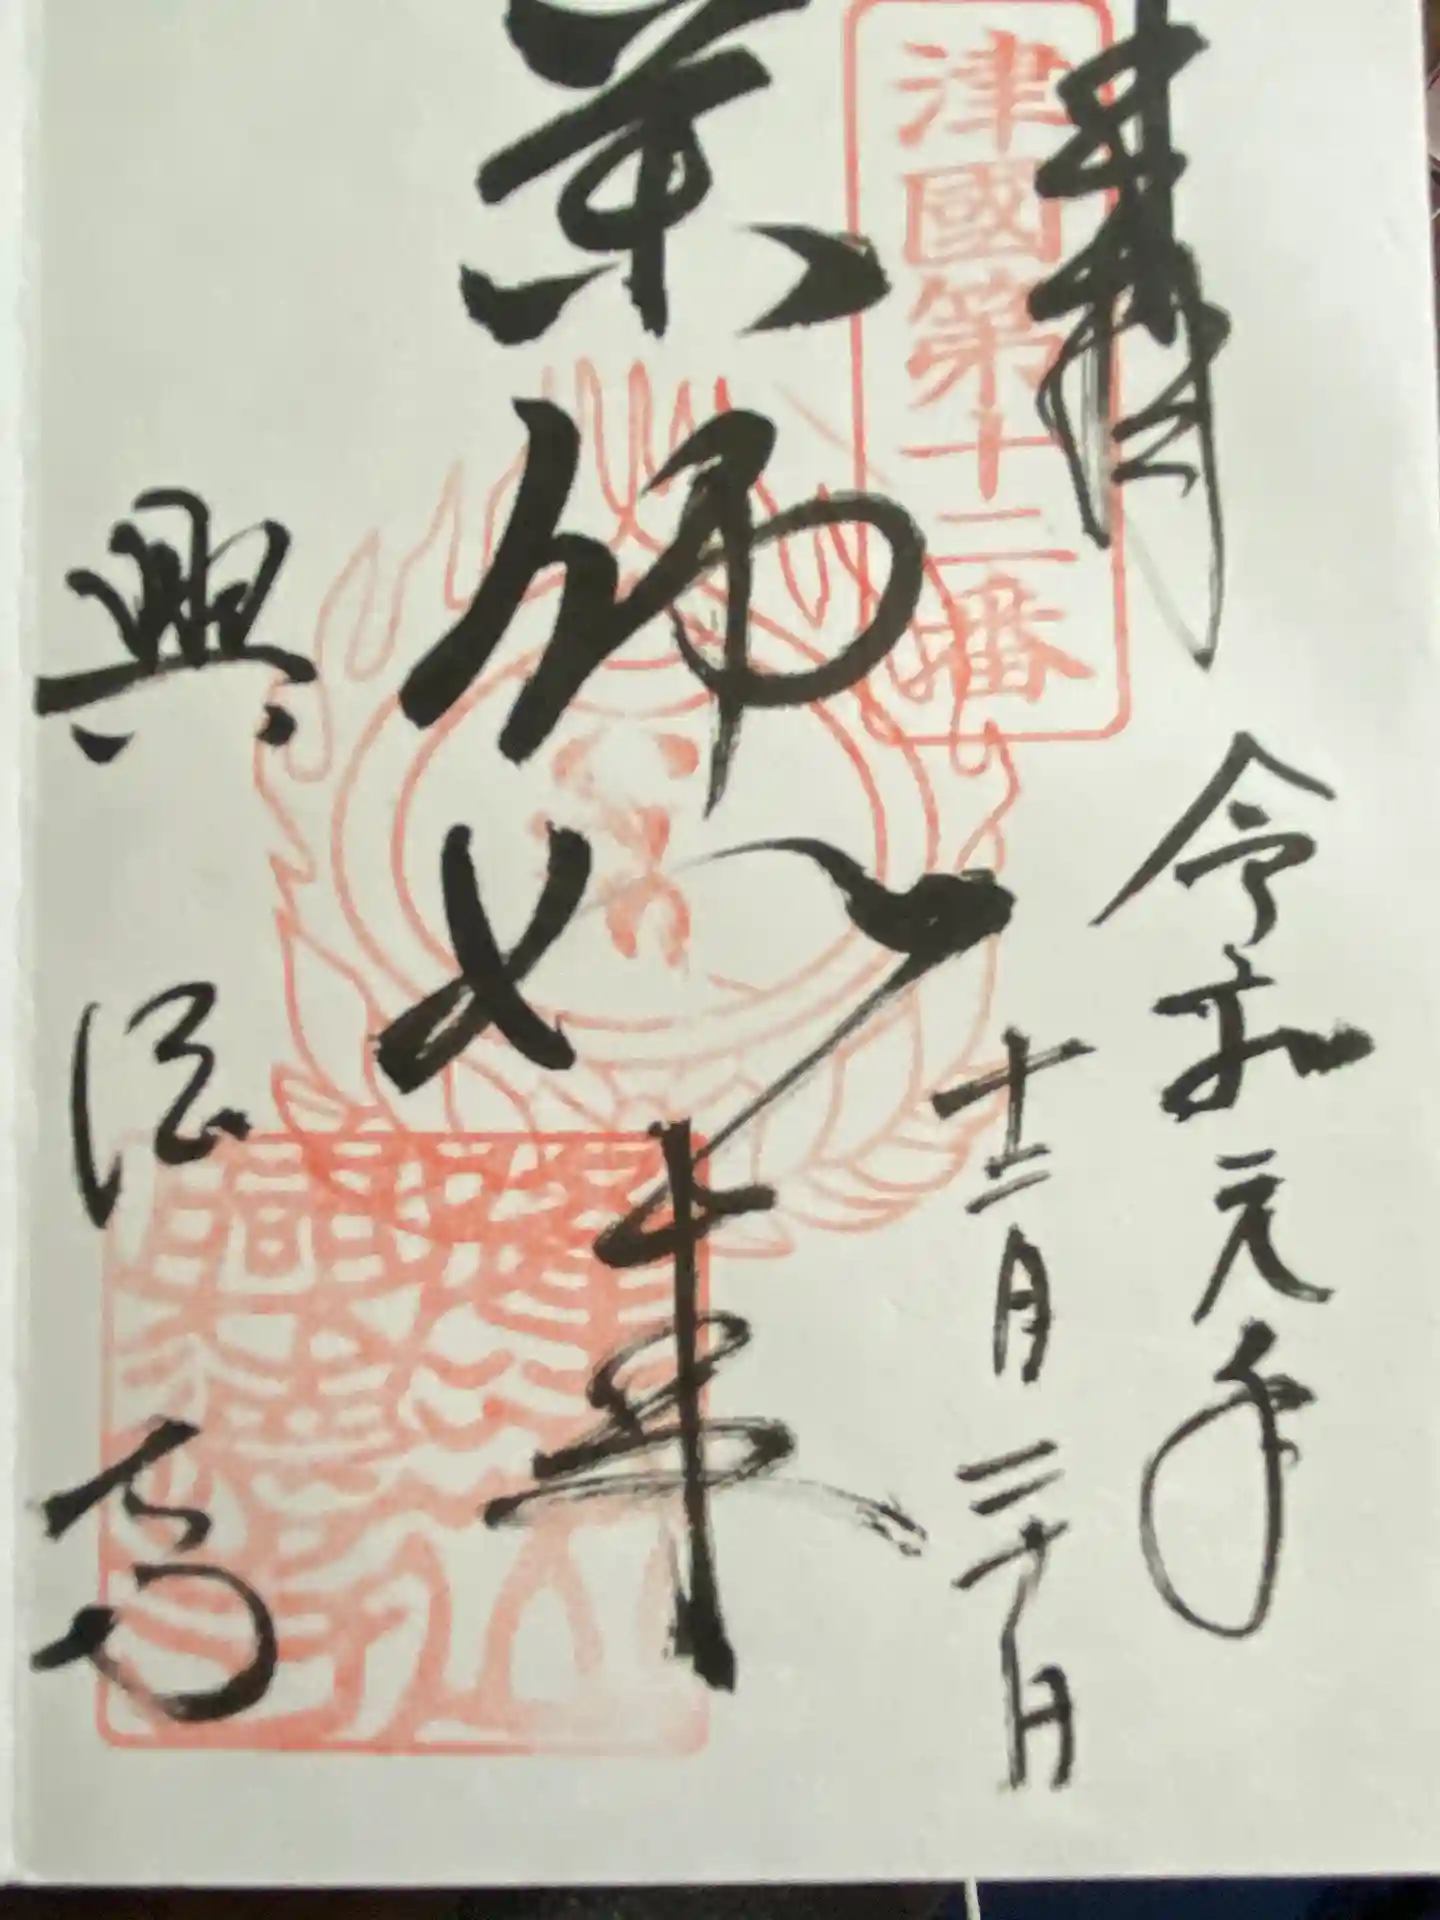 奉拝
津國第十二番
令和元年
十二月三十日
薬師如来
興徳寺